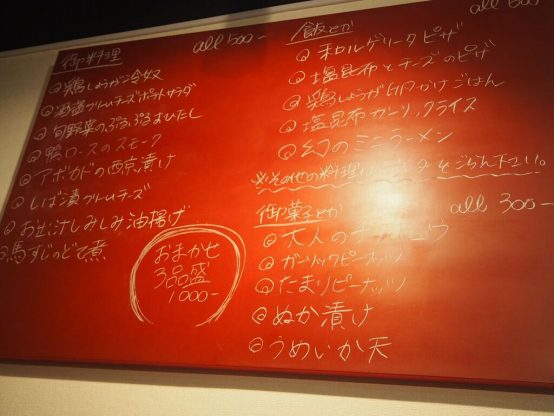 御料理 all 500-
◎鶏しょうが冷奴
◎酒盗クリームチーズポテトサラダ
◎旬野菜のぷるぷるおひたし
◎鴨ロースのスモーク
◎アボカドの西京漬け
◎しば漬クリームチーズ
◎お出汁しみしみ油揚げ
◎馬すじのどて煮
おまかせ
3品盛
1000-
飯とか all 600
◎和ルゲリータピザ
◎塩昆布とチーズのピザ
◎鶏しょうがぶっかけごはん
◎塩昆布ガーリックライス
◎幻のミニラーメン
※その他の料理は をごらん下さい。
御菓子とか all 300-
◎大人の
◎ガーリックピーナッツ
◎たまりピーナッツ
◎ぬか漬け
◎うめいか天